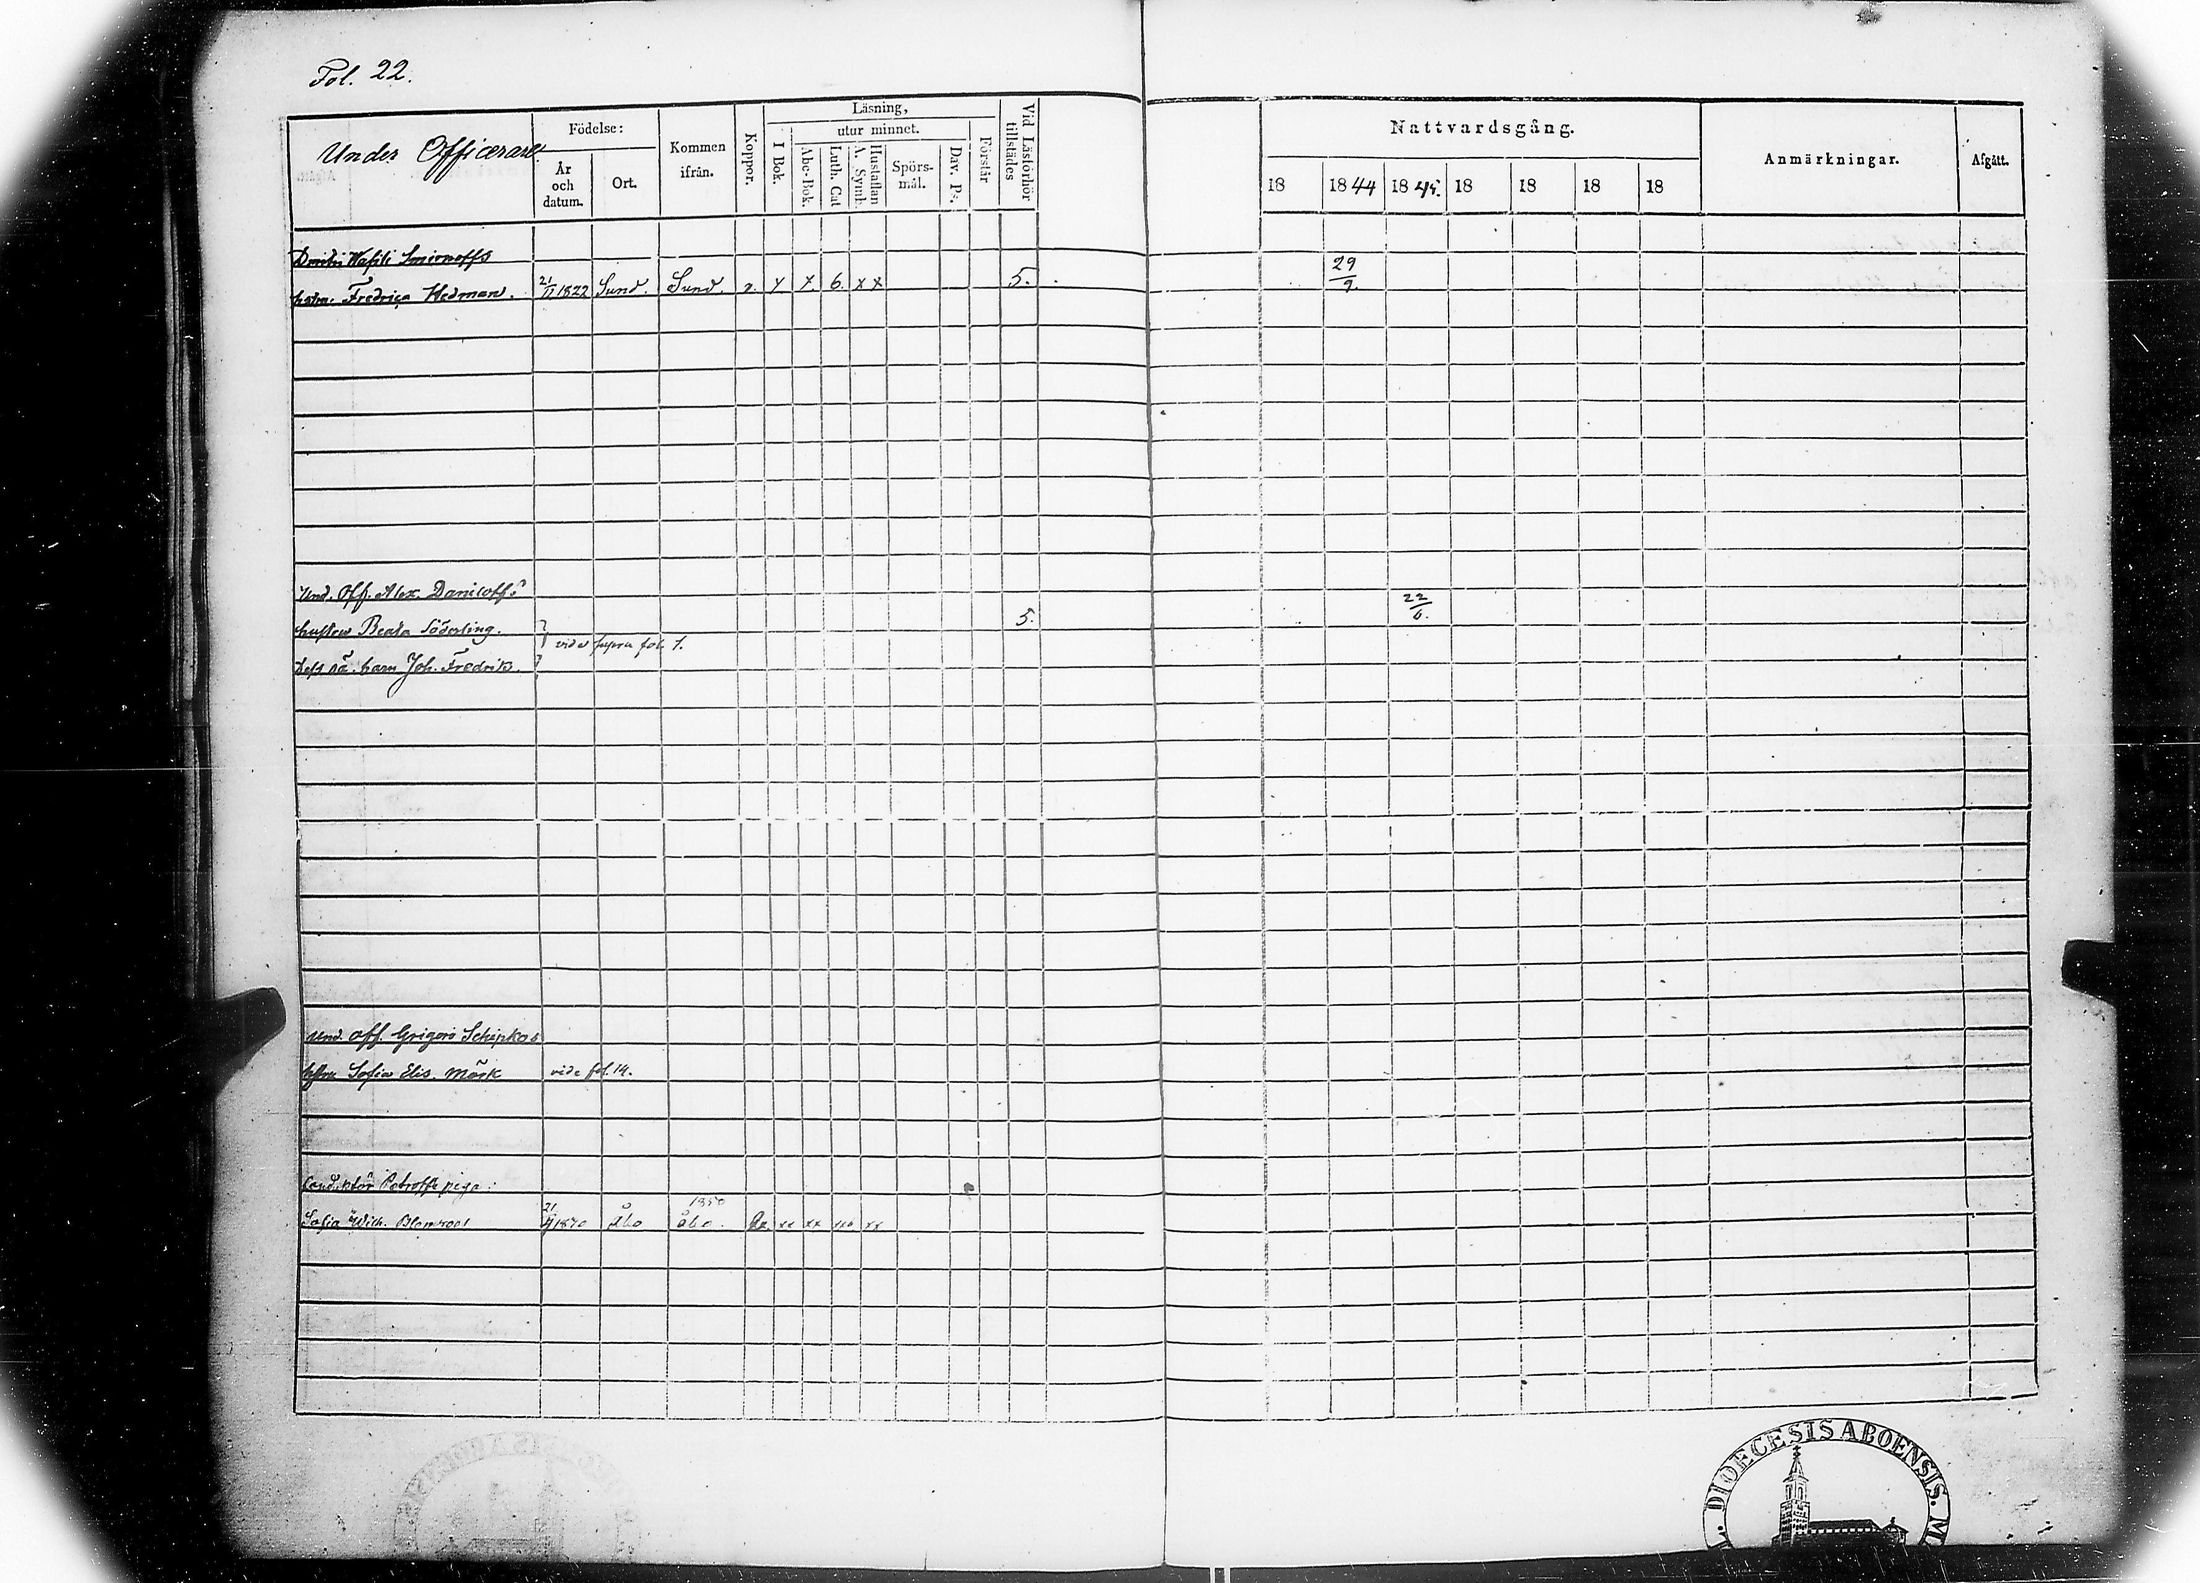 Fol. 22.
Under Officerare
Födelse:
År
och
datum.
Ort.
Kommen
ifrån.
Koppor.
Läsning,
utur minnet.
I Bok.
Abc-Bok.
Luth. Cat
Hustaflan
A. Symb.
Spörs-
mål.
Dav. Ps.
Förstår
Vid Läsförhör
tillstädes
Nattvardsgång.
18 1844 1845. 18 18 18 18
Anmärkningar.
Afgått.
Dmitri Wasili Smirnoffs
hstru. Fredrica Hedman. 21/11 1822 Sund. Sund. x x 6. x x 5. 29/9.
Und. Off. Alex. Daniloffs 22/6.
hustru Beata Söderling. 5.
vide supra fol. 1.
barn Joh. Fredrik.
Und. Off. Grigori Schipkos
hstru Sofia Elis. Mörk vide fol. 14.
Conduktör Petroffs piga:
1850
Sofia Wilh. Åbo Åbo. xx xx xx xx
DIOECESIS ABOENSIS. M